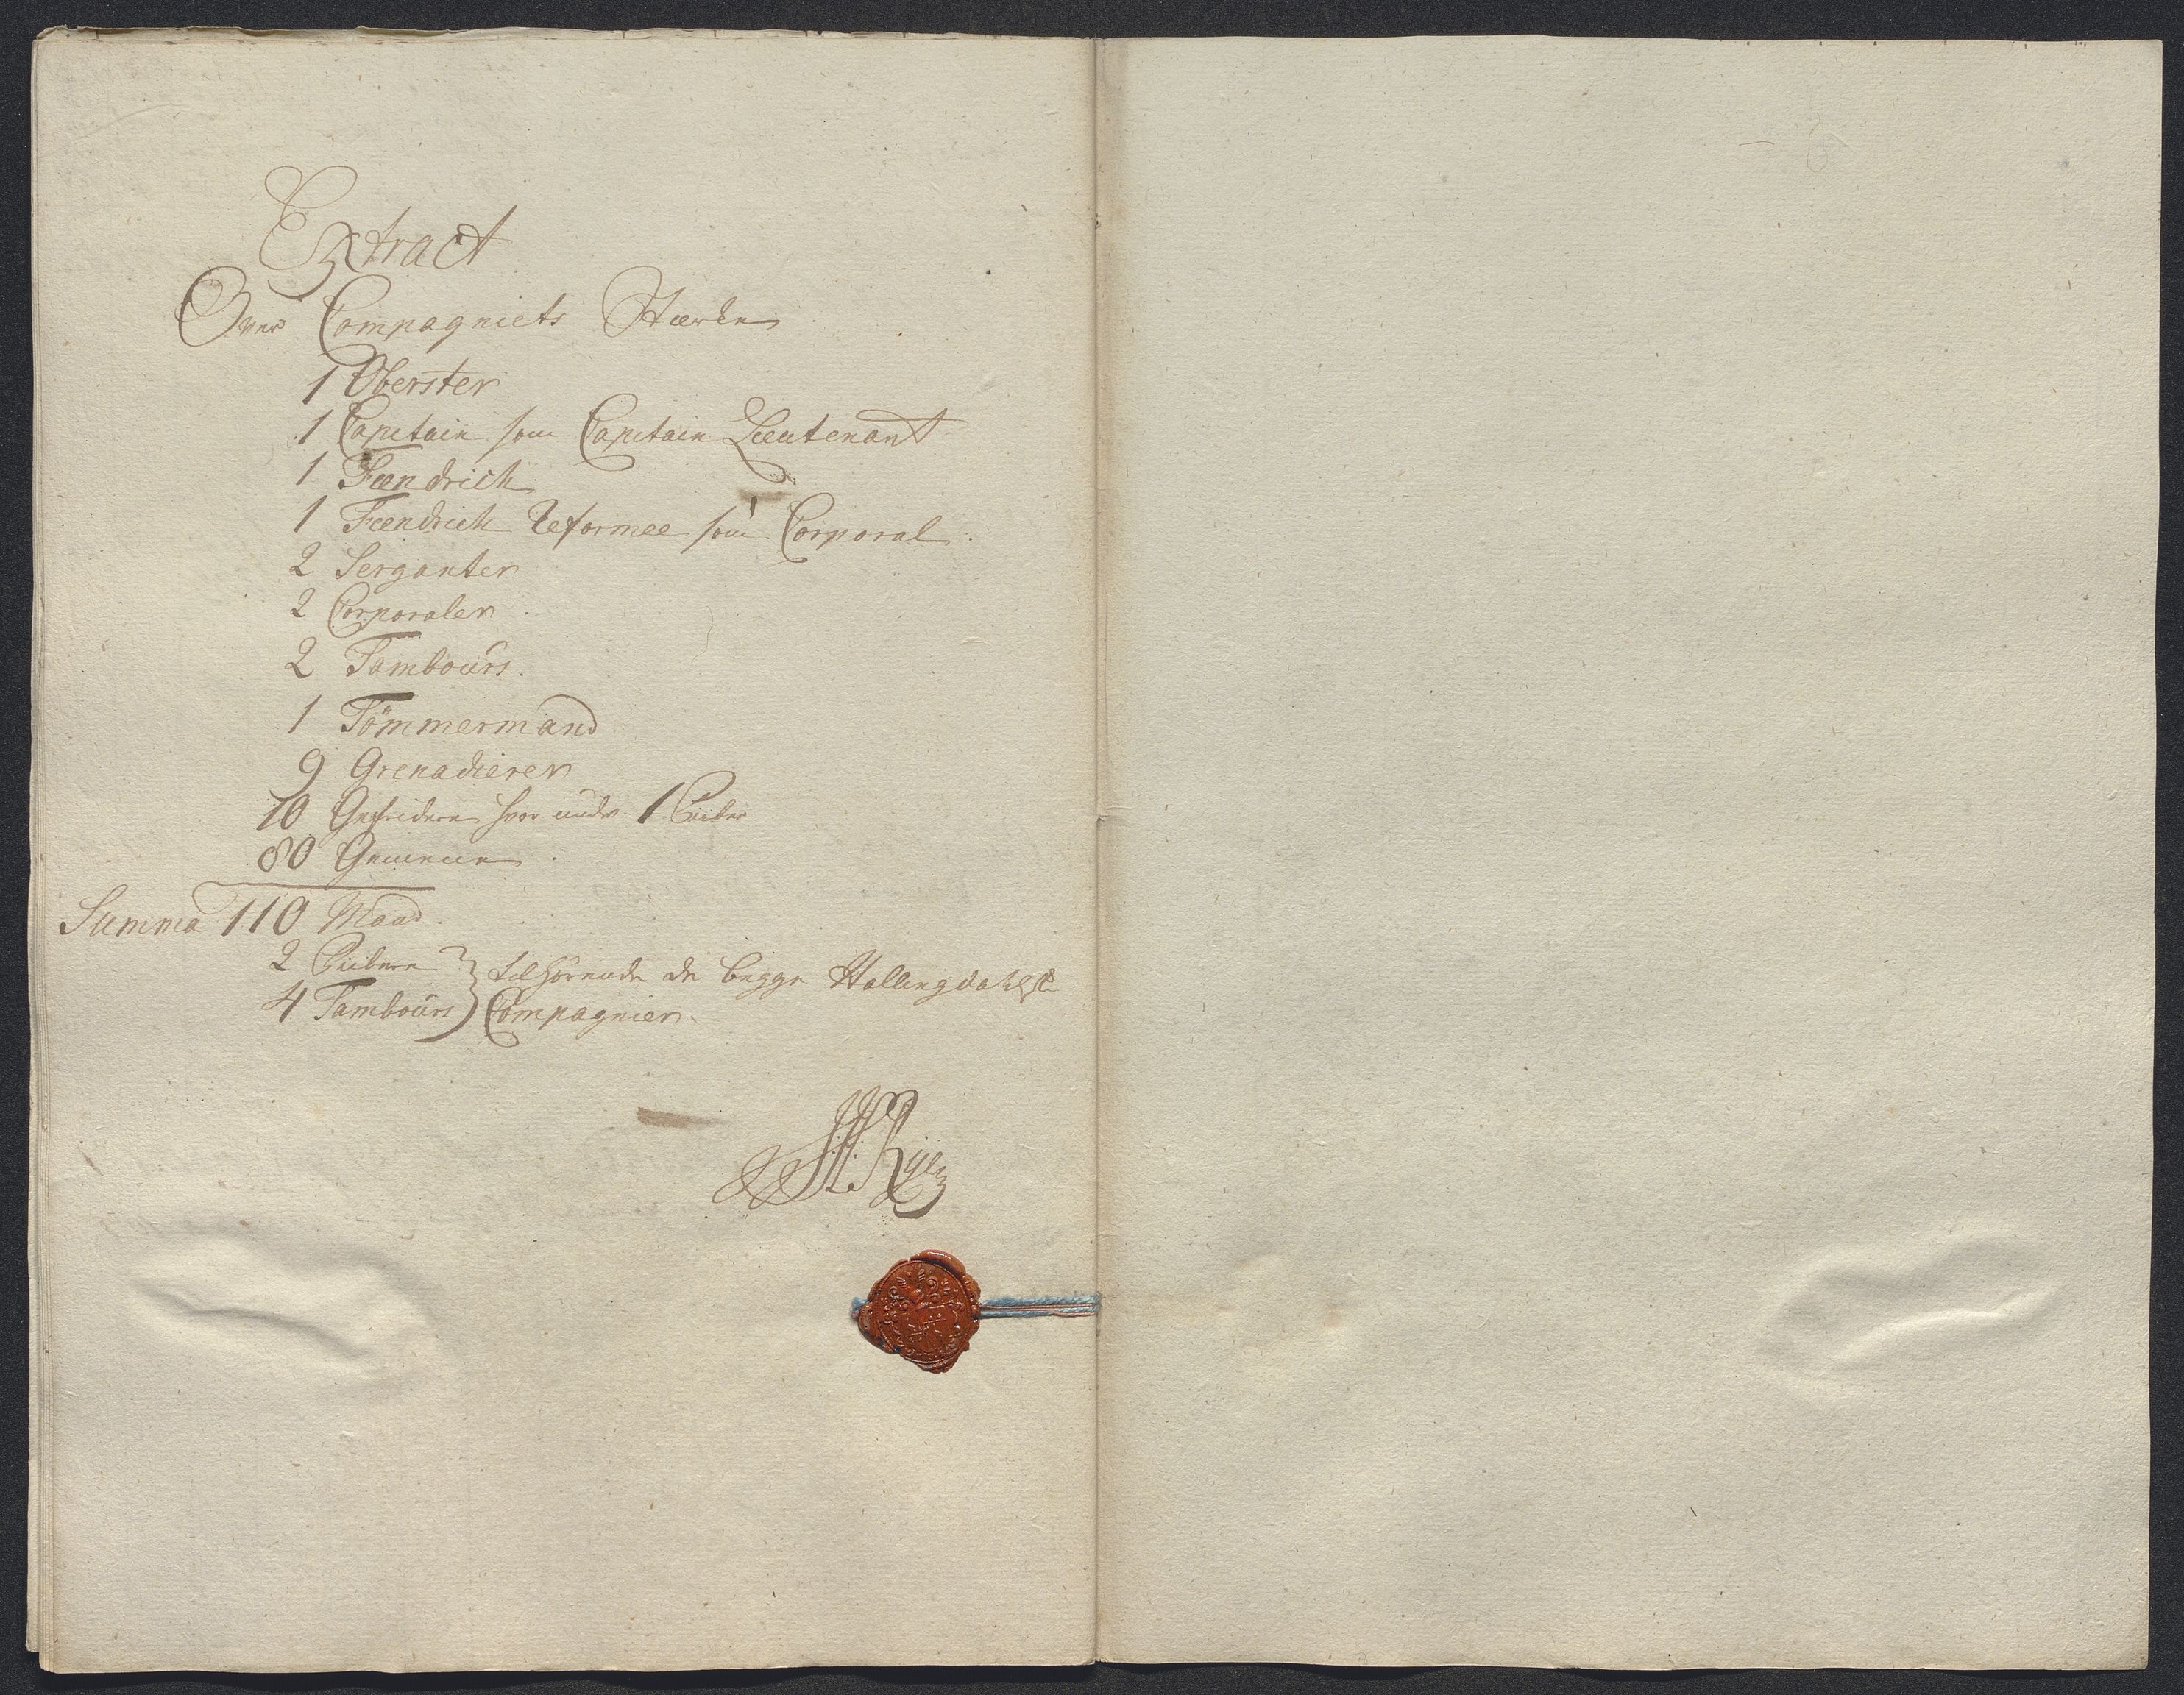 Extract
Over Compagniets Stærke
1 Oberster
1 Capitain som Capitain Lieutenant
1 Fændrich
1 Fændrich Reformee som Corporal
2 Serganter
2 Corporaler
2 Tambours.
1 Tömmermand
9 Grenadierer
10 Gefridere hvor under 1 Piiber
80 Gemene
Summa 110 Mand.
2 Piibere
4 Tambours } tilhörende de begge Hallingdahlske
Compagnier.